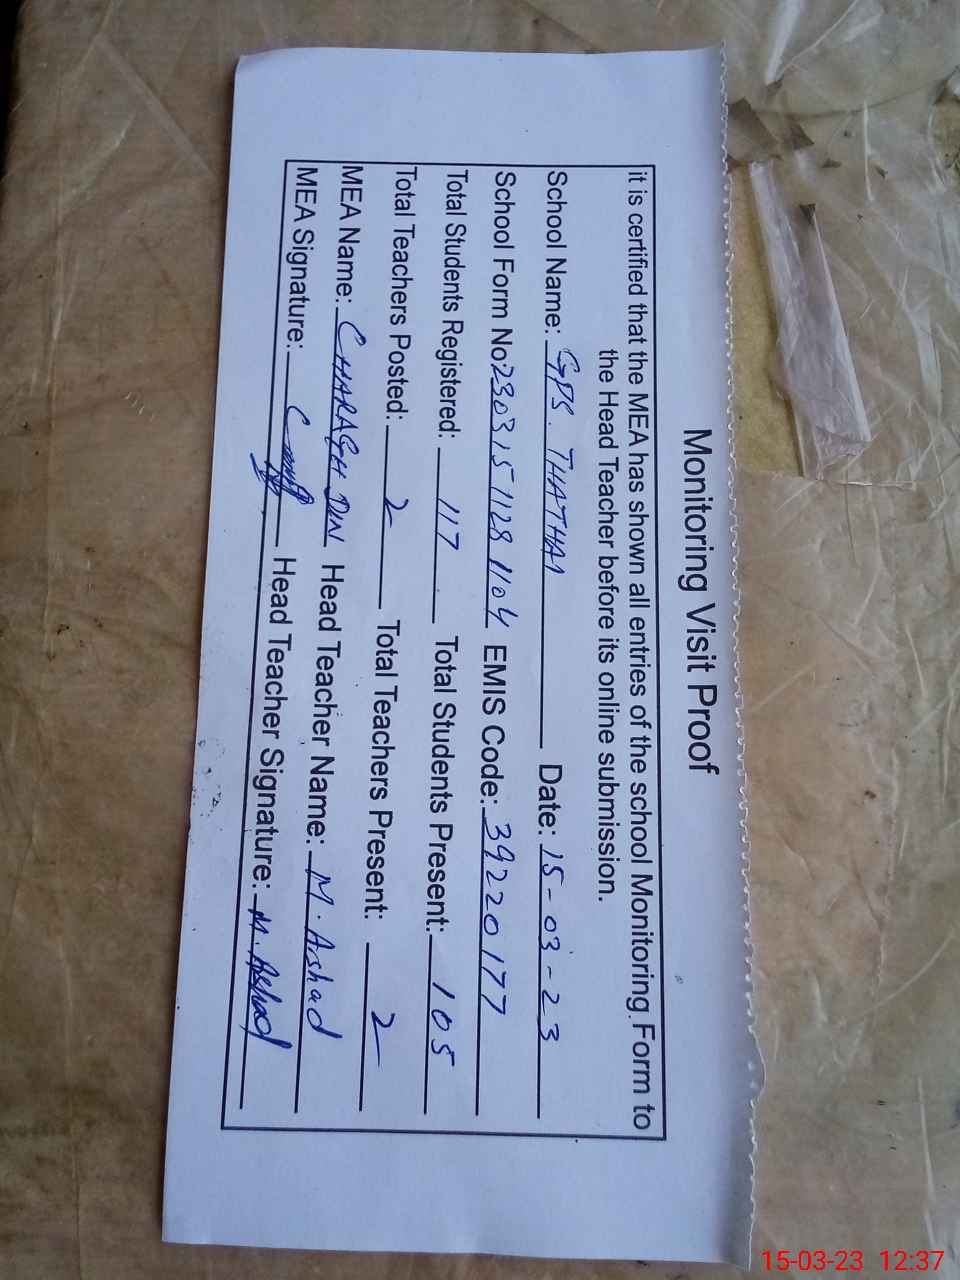 Monitoring Visit Proof
it is certified that the MEA has shown all entries of the school Monitoring Form to
the Head Teacher before its online submission.
School Name: GPS. THATHAI Date: 15-03-23
School Form No: 230315 1128 1104 EMIS Code: 39220177
Total Students Registered: 117 Total Students Present: 105
Total Teachers Posted: 2 Total Teachers Present: 2
MEA Name: CHARAGH DIN Head Teacher Name: M. Arshad
MEA Signature: Head Teacher Signature: M. Arshad
15-03-23 12:37